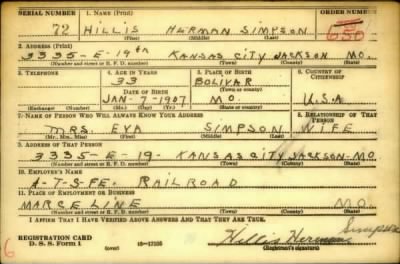 SERIAL NUMBER 1. NAME (Print) ORDER NUMBER
72 HILLIS HERMAN SIMPSON 650
(First) (Middle) (Last)
2. ADDRESS (Print)
3335-E-19th KANSAS CITY JACKSON MO.
(Number and street or R. F. D. number) (Town) (County) (State)
3. TELEPHONE 4. AGE IN YEARS 5. PLACE OF BIRTH 6. COUNTRY OF CITIZENSHIP
33 BOLIVAR
DATE OF BIRTH (Town or county)
JAN-7-1907 MO. U.S.A
(Exchange) (Number) (Mo.) (Day) (Yr.) (State or country)
7. NAME OF PERSON WHO WILL ALWAYS KNOW YOUR ADDRESS 8. RELATIONSHIP OF THAT PERSON
MRS. EVA SIMPSON WIFE
(Mr., Mrs., Miss) (First) (Middle) (Last)
9. ADDRESS OF THAT PERSON
3335-E-19-KANSAS CITY JACKSON-MO.
(Number and street or R. F. D. number) (Town) (County) (State)
10. EMPLOYER'S NAME
A-T-S-FE, RAILROAD
11. PLACE OF EMPLOYMENT OR BUSINESS
MARCELINE MO.
(Number and street or R. F. D. number) (Town) (County) (State)
I AFFIRM THAT I HAVE VERIFIED ABOVE ANSWERS AND THAT THEY ARE TRUE.
REGISTRATION CARD
D. S. S. Form 1 16-17105 Hillis Herman Simpson
(Registrant's signature)
6